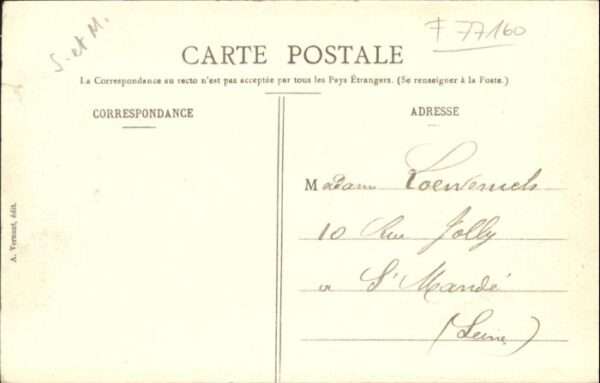 S. et M.
F 77160
CARTE POSTALE
La Correspondance au recto n'est pas acceptée par tous les Pays Étrangers. (Se renseigner à la Poste.)
CORRESPONDANCE
ADRESSE
Madame
10 Rue Jolly
a St Mandé
(Seine)
A. Vernant, édit.